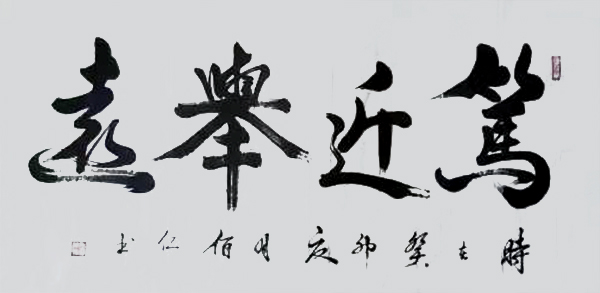 篤近舉遠
時在癸卯夏月佰仁书